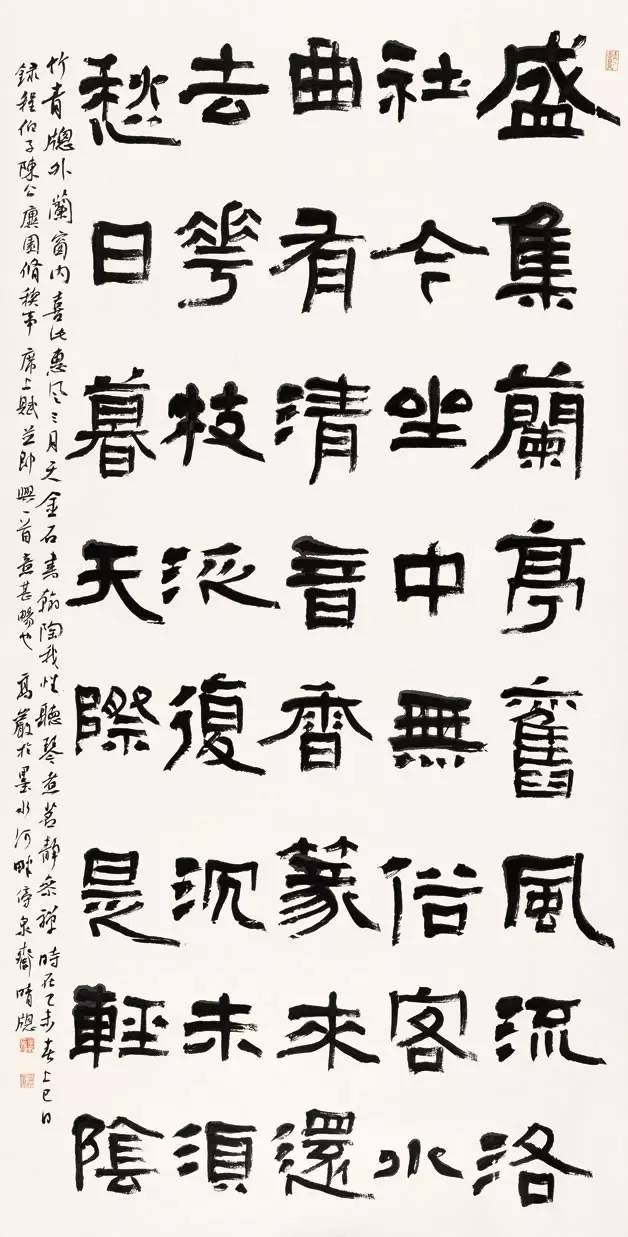 盛集蘭亭舊風流洛
社今坐中無俗客水
曲有清音香篆來還
去華枝泛復沉未須
愁日暮天際是輕陰
竹青牕外蘭窗內喜沐惠風三月天金石書翰陶我性聽琴煮茗靜參禪時在乙未春上巳日
録程伯子陳公廙園脩禊事席上賦并即興一首意甚暢也高巖於墨水河畔泉齋晴牕